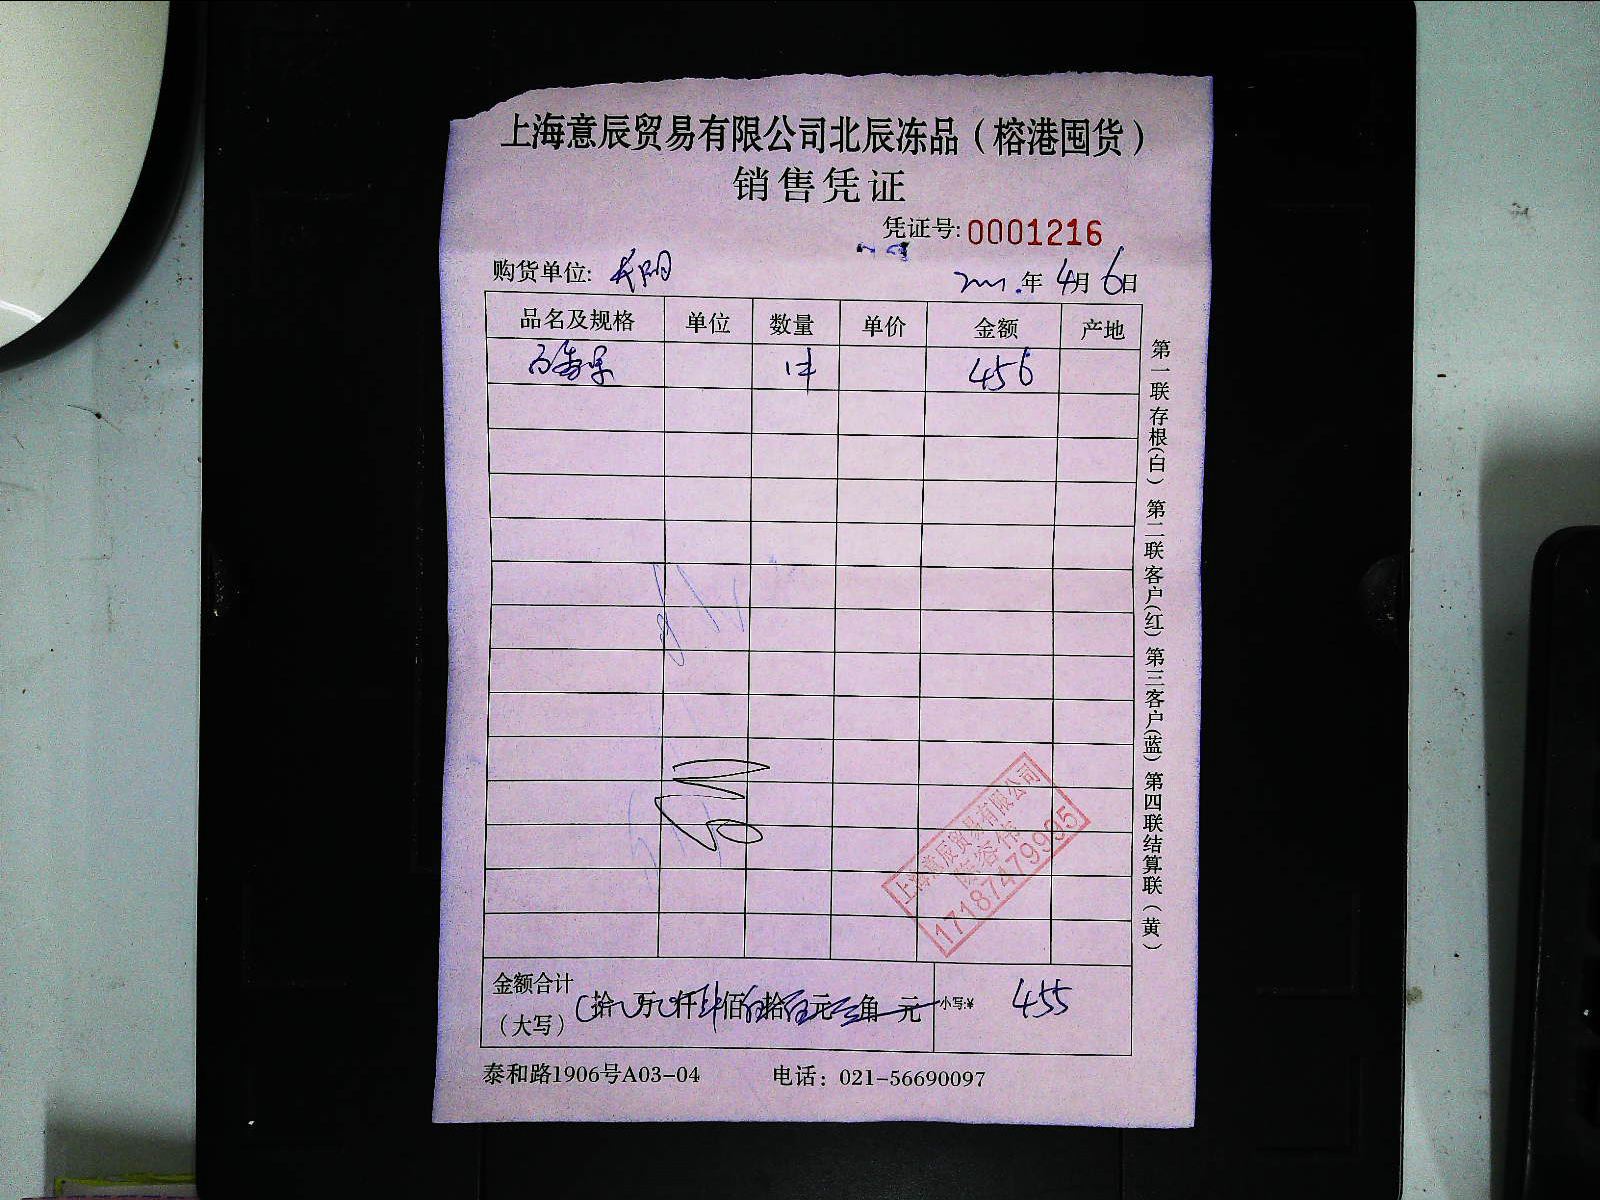 上海意辰贸易有限公司北辰冻品（榕港囤货）
销售凭证
凭证号: 0001216
购货单位:
年 4月 6日
品名及规格 单位 数量 单价 金额 产地
百香果 1件 456
金额合计
（大写） 拾 万 仟 佰 拾 元 角 元 小写:¥ 455
泰和路1906号A03-04 电话：021-56690097
第一联存根(白) 第二联客户(红) 第三客户(蓝) 第四联结算联（黄）
上海意辰贸易有限公司
17187479995